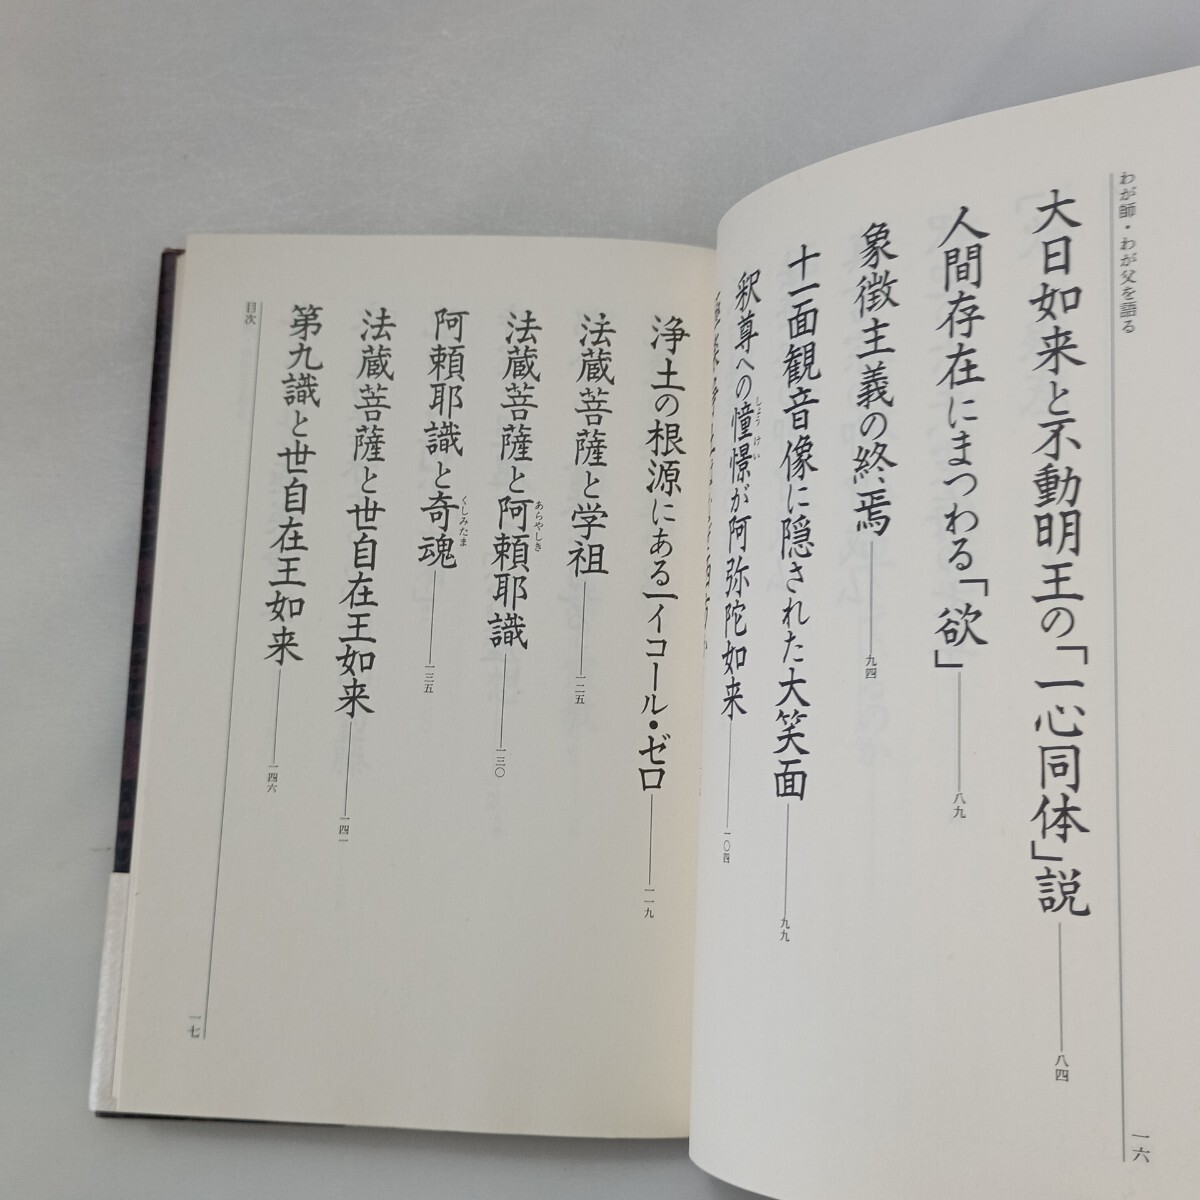 わが師・わが父を語る
大日如来と不動明王の「一心同体」説――八四
人間存在にまつわる「欲」――八九
象徴主義の終焉――九四
十一面観音像に隠された大笑面――九九
釈尊への憧憬が阿弥陀如来――一〇四
しょうけい
一六
浄土の根源にある一イコール・ゼロ――一一九
法蔵菩薩と学祖――一二五
法蔵菩薩と阿頼耶識――一三〇
あらやしき
阿頼耶識と奇魂――一三五
くしみたま
法蔵菩薩と世自在王如来――一四一
第九識と世自在王如来――一四六
目次
一七